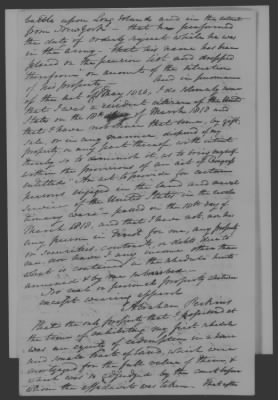 battle upon Long Island and in the retreat
from New York – that he has performed
the duty of orderly sergeant while he was
in the army – that his name has been
placed on the pension list and dropped
therefrom on account of the situation
of his property – And in pursuance
of the Act of May 1820, I do solemnly swear
that I was a resident citizen of the United
States on the 18th day of March 1818 and
that I have not since that time, by gift,
sale, or in any manner, disposed of my
property or any part thereof with intent
thereby so to diminish it as to bring myself
within the provisions of an act of Congress
entitled "An Act to provide for certain
persons engaged in the land and naval
service of the United States in the revolu-
tionary war" – passed on the 18th day of
March 1818, and that I have not, nor has
any person in trust for me, any property
or securities, contracts, or debts due to
me nor have I any income other than
what is contained in the schedule hereto
annexed & by me subscribed –
No real or personal property
except wearing apparel
Abraham Perkins
That the only property that I possessed at
the time of exhibiting my first schedule
was an equity of redemption in a house
and small tract of land, which were
mortgaged for the full value of them, &
which was so adjudged by the court before
whom the affidavit was taken. That after